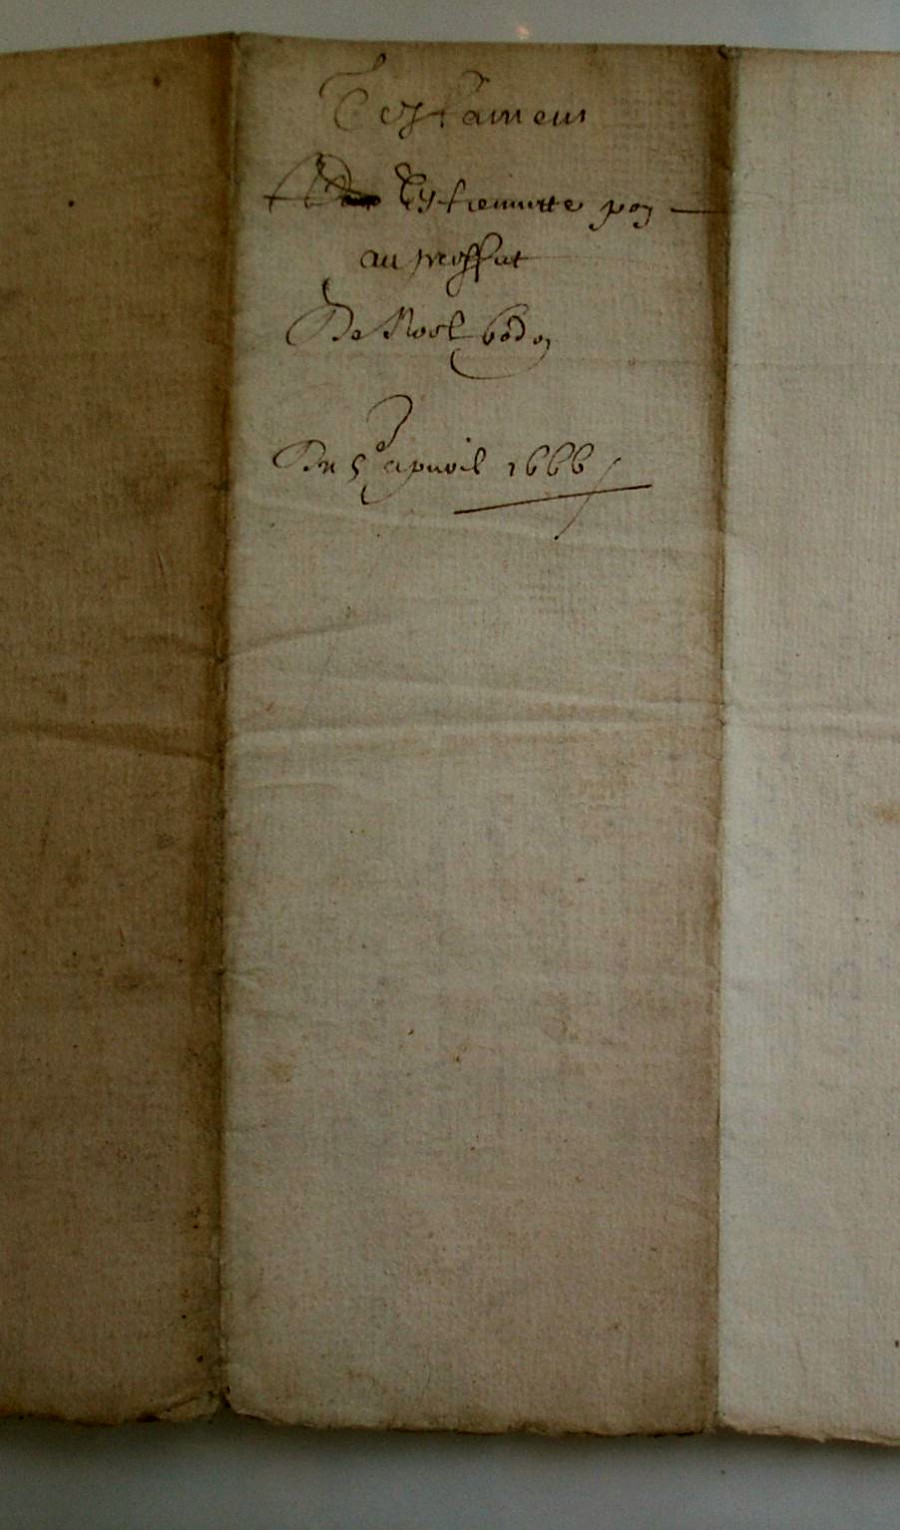 Testament
Estiennette poy
au proffict
De Noel bodoy
Du 5e apvril 1666